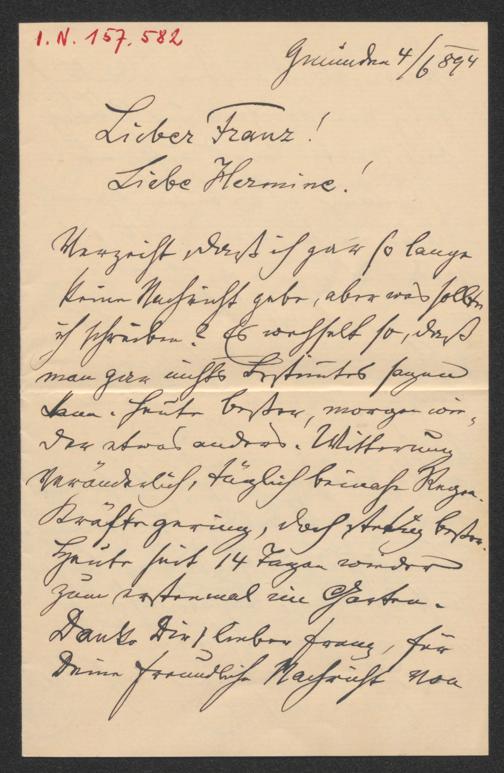 I. N. 157.582
Gmunden 4/6 894
Lieber Franz!
Liebe Hermine!
Verzeiht, daß ich gar so lange
keine Nachricht gebe, aber was sollte
ich schreiben? Es wechselt so, daß
man gar nichts Bestimtes sagen
kann. Heute besser, morgen wie-
der etwas anders. Witterung
veränderlich, täglich beinahe Regen.
Kräfte gering, doch stetig besser.
Heute seit 14 Tagen wieder
zum erstenmal im Garten.
Danke Dir, lieber Franz, für
Deine freundliche Nachricht von